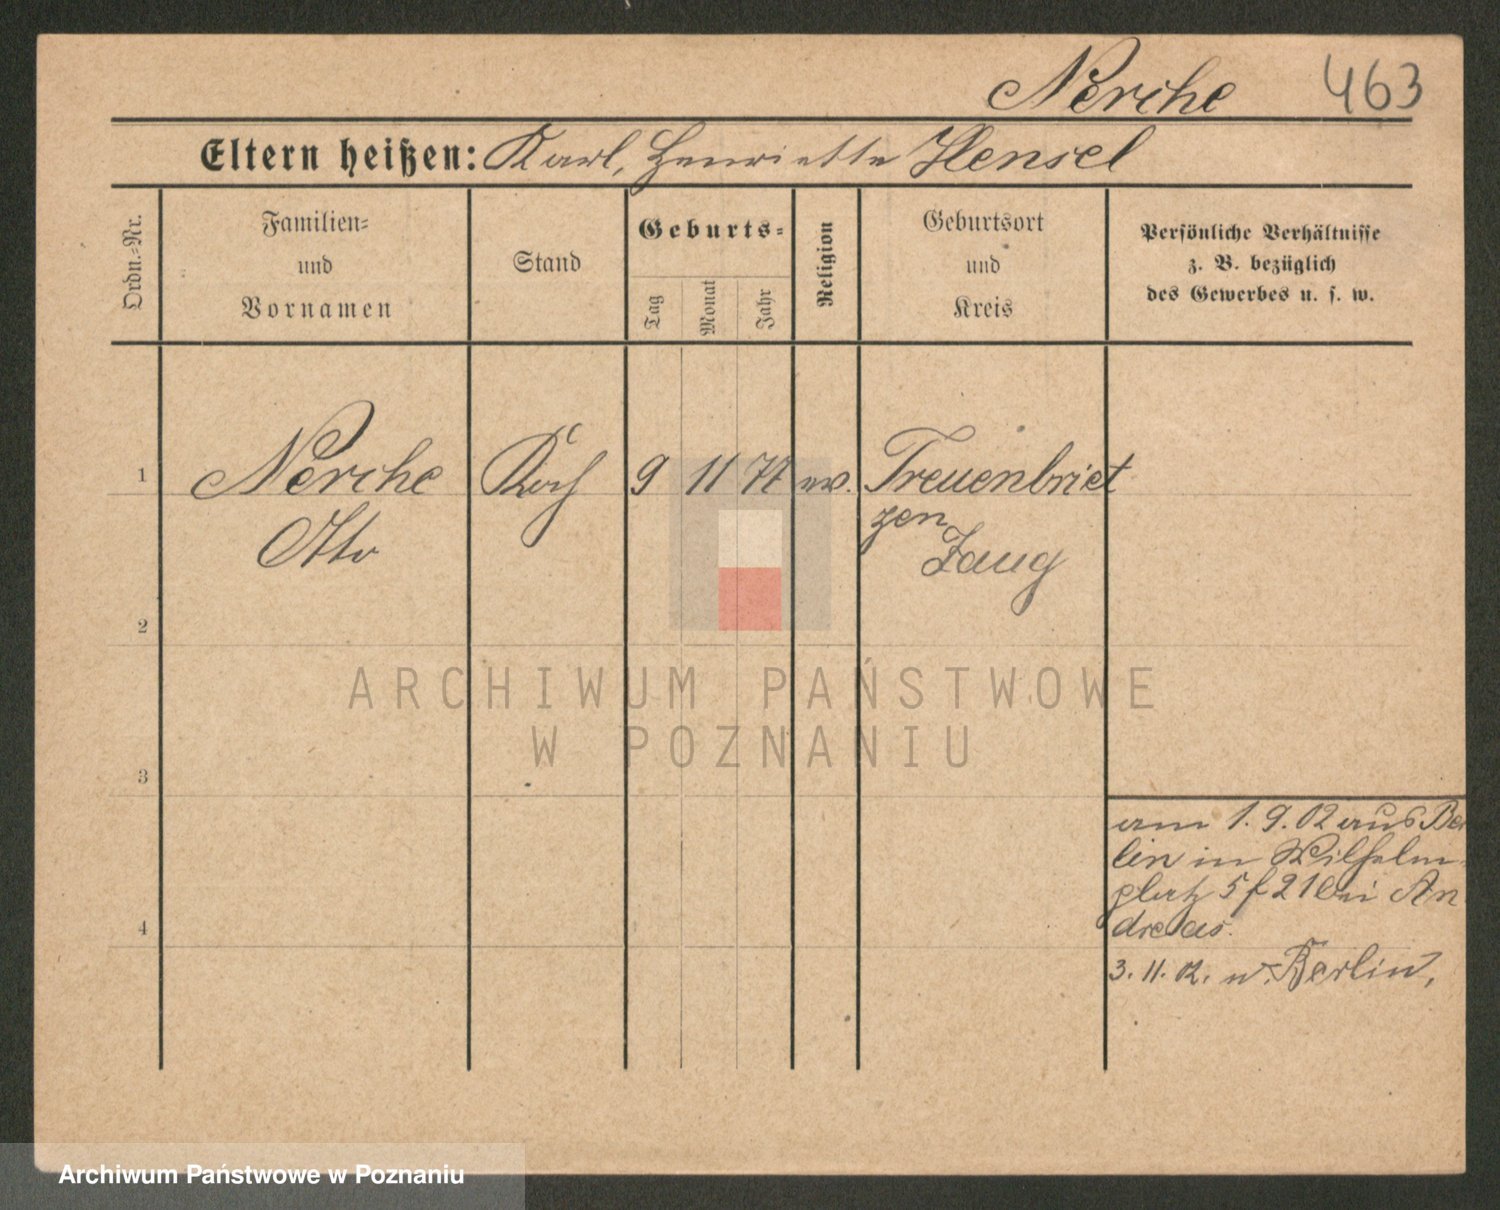 Nerche 463
Eltern heißen: Karl, Henriette Hensel
Ordn.=Nr.
Familien=
und
Vornamen
Stand
Geburts=
Tag
Monat
Jahr
Religion
Geburtsort
und
Kreis
Persönliche Verhältnisse
z. B. bezüglich
des Gewerbes u. s. w.
1 Nerche Koch 9 11 77 ev. Treuenbriet
zen
Otto Zaug
2
3
4
am 1.9.02 aus Ber
lin in Wilhelm
platz 5 f 21 bei An
dreas.
3.11.02. n. Berlin,
ARCHIWUM PAŃSTWOWE
W POZNANIU
Archiwum Państwowe w Poznaniu